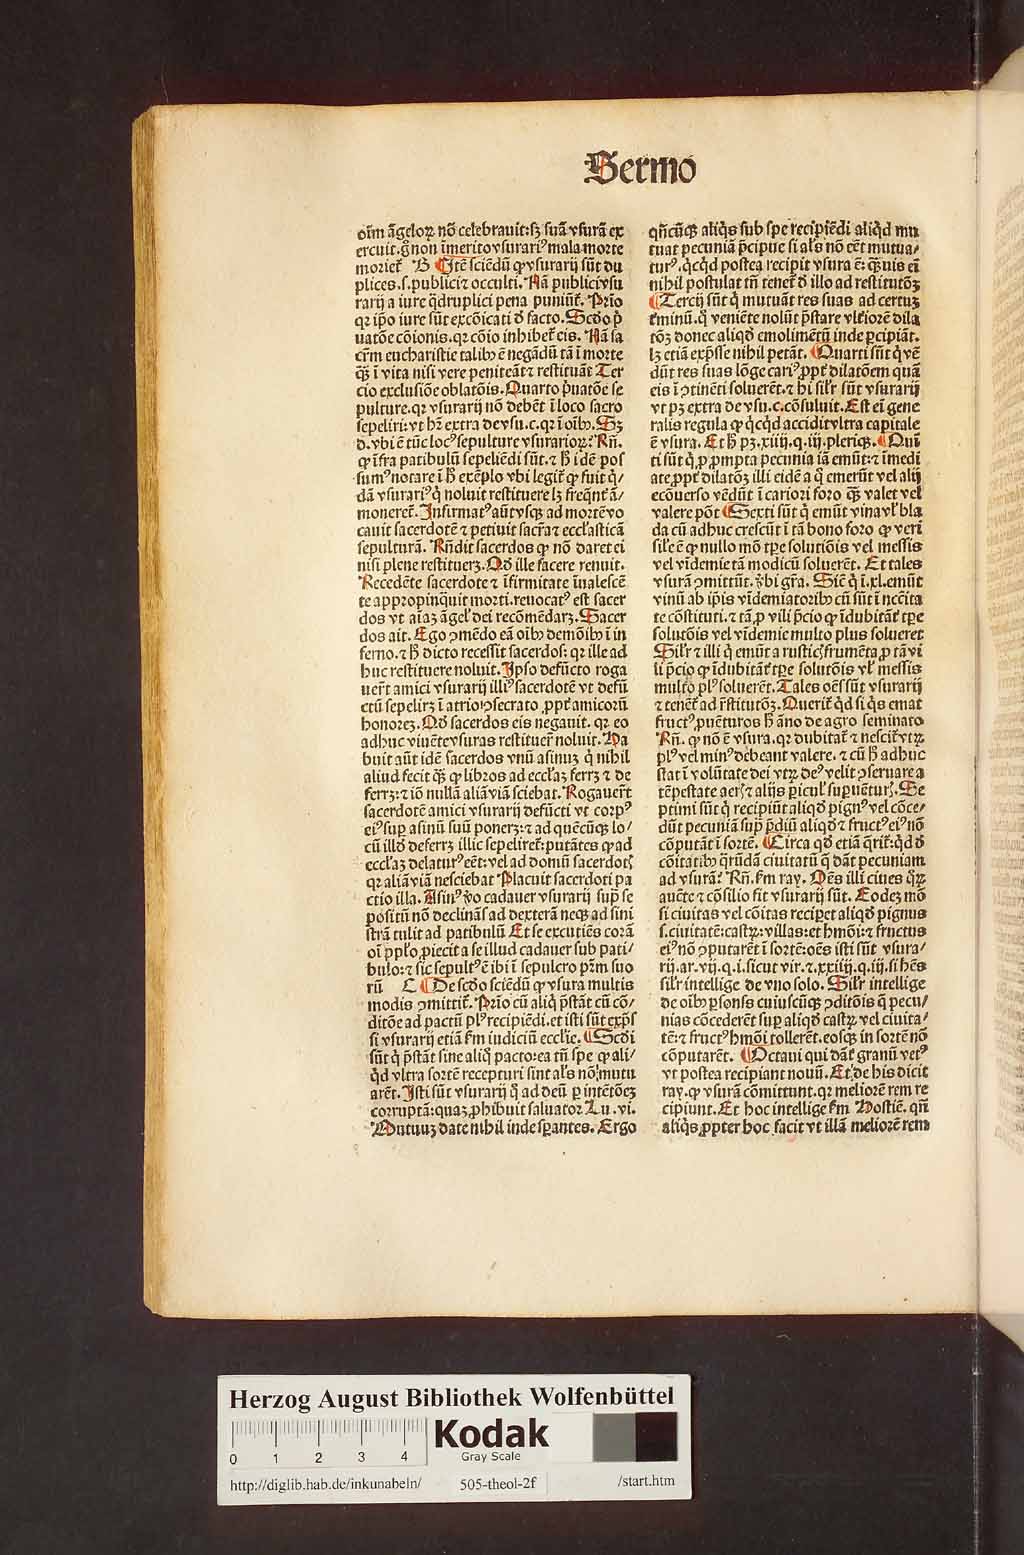 Sermo
oīm āgeloꝝ nō celebrauit: sꝫ suā vsurā ex
ercuit. gͦ non īmerito vsurariꝰ mala morte
morietͬ B ¶ Itē sciēdū ꝙ vsurarij sūt du
plices. s. publici ⁊ occulti. Nā publici vsu
rarij a iure q̄druplici pena puniūtͬ. Prīo
qꝛ ip̄o iure sūt excōicati d̓ facto. Scd̓o p̄
uatōe cōionis. qꝛ cōio inhibetͬ eis. Nā sa
cr̄m eucharistie talibꝫ ē negādū tā ī morte
qꝫ̄ ī vita nisi vere peniteāt ⁊ restituāt Ter
cio exclusiōe oblatōis. Quarto p̄uatōe se
pulture. qꝛ vsurarij nō debēt ī loco sacro
sepeliri: vt hꝫ extra de vsu. c. qꝛ ī oībꝫ. Sꝫ
d. vbi ē tūc locꝰ sepulture vsurarioꝝ? Rn̄.
ꝙ īfra patibulū sepeliēdi sūt. ⁊ h̓ idē pos
sumꝰ notare ī h̓ exēplo vbi legitͬ ꝙ fuit q̇/
dā vsurariꝰ q̇ noluit restituere lꝫ freq̄ntͬ ā/
moneret. Infirmatꝰ aūt vsqꝫ ad mortē vo
cauit sacerdotē ⁊ petiuit sacr̄a ⁊ eccl̓asticā
sepulturā. Rn̄dit sacerdos ꝙ nō daret ei
nisi plene restitueꝫ. Qd̓ ille facere renuit.
Recedēte sacerdote ⁊ īfirmitate īualescē
te appropinq̄uit morti. reuocatꝰ est sacer
dos vt aīaꝫ āgel̓ dei recōmēdaꝫ. Sacer
dos ait. Ego ꝯmēdo eā oībꝫ demōibꝫ ī in
ferno. ⁊ h̓ dicto recessit sacerdos: qꝛ ille ad
huc restituere noluit. Ipso defūcto roga
uer̄t amici vsurarij illiꝰ sacerdotē vt defū
ctū sepeliꝫ ī atrio ꝯsecrato ꝓpt̓ amicorū
honoreꝫ. Qd̓ sacerdos eis negauit. qꝛ eo
adhuc viuēte vsuras restituer̄ noluit. Ha
buit aūt idē sacerdos vnū asinuꝫ q̇ nihil
aliud fecit qꝫ̄ ꝙ libros ad eccl̓aꝫ ferꝫ ⁊ de
ferꝫ: ⁊ iō nullā aliā viā sciebat. Rogauer̄t
sacerdotē amici vsurarij defūcti vt corpꝰ
eiꝰ suꝑ asinū suū poneꝫ: ⁊ ad quēcūqꝫ lo/
cū illd̓ deferꝫ illic sepeliretͬ: putātes ꝙ ad
eccl̓aꝫ delaturꝰ eēt: vel ad domū sacerdotꝭ
qꝛ aliā viā nesciebat Placuit sacerdoti pa
ctio illa. Asinꝰ v̓o cadauer vsurarij suꝑ se
positū nō declinās ad dexterā neqꝫ ad sini
strā tulit ad patibulū Et se excutiēs corā
oī pp̄lo ꝓiecit a se illud cadauer sub pati/
bulo: ⁊ sic sepultꝰ ē ibi ī sepulcro pr̄m suo
rū C ¶ De scd̓o sciēdū ꝙ vsura multis
modis ꝯmittitͬ. Prīo cū aliq̇ p̄stāt cū cō/
ditōe ad pactū plꝰ recipiēdi. et isti sūt exp̄s
si vsurarij etiā km̄ iudiciū eccl̓ie. ¶ Scd̓i
sūt q̇ p̄stāt sine aliq̊ pacto: ea tn̄ spe ꝙ ali/
q̇d vltra sortē recepturi sint al̓s nō mutu
arēt. Isti sūt vsurarij q̊ ad deū ꝑ intētōeꝫ
corruptā: quaꝫ ꝓhibuit saluator Lu. vi.
Mutuuꝫ date nihil inde sꝑantes. Ergo
qn̄cūqꝫ aliq̇s sub spe recipiēdi aliq̇d mu
tuat pecuniā p̄cipue si al̓s nō eēt mutua/
turꝰ. q̇cq̇d postea recipit vsura ē: qꝫ̄uis eī
nihil postulat tn̄ tenetͬ d̓ illo ad restitutōꝫ
¶ Tercij sūt q̇ mutuāt res suas ad certuꝫ
t̓minū. q̇ veniēte nolūt p̄stare vlt̓iorē dila
tōꝫ donec aliqd̓ emolimētū inde ꝑcipiāt.
lꝫ etiā exp̄sse nihil petāt. ¶ Quarti sūt q̇ vē
dūt res suas lōge cariꝰ ꝓpt̓ dilatōem quā
eis ī ꝯtinēti soluerēt. ⁊ hi sil̓r sūt vsurarij
vt pꝫ extra de vsu. c. cōsuluit. Est eī gene
ralis regula ꝙ q̇cq̇d accidit vltra capitale
ē vsura. Et h̓ pꝫ. xiiij. q. iij. pleriqꝫ. ¶ Quī
ti sūt q̇ ꝓ ꝓmpta pecunia iā emūt: ⁊ īmedi
ate ꝓpt̓ dilatōꝫ illi eidē a q̊ emerūt vel alij
ecōuerso vēdūt ī cariori foro qꝫ̄ valet vel
valere pōt ¶ Sexti sūt q̇ emūt vina vl̓ bla
da cū adhuc crescūt ī tā bono foro ꝙ veri
sil̓e ē ꝙ nullo mō tꝑe solutiōis vel messis
vel vīdemie tā modicū soluerēt. Et tales
vsurā ꝯmittūt. v̓bi gr̄a. Sīc q̇ ī. xl. emūt
vinū ab ip̄is vīdemiatoribꝫ cū sūt ī nc̄ita
te cōstituti. ⁊ tā ꝓ vili p̄cio ꝙ īdubitātͬ tꝑe
solutōis vel vīdemie multo plus solueret
Sil̓r ⁊ illi q̇ emūt a rusticꝭ frumēta ꝓ tā vi
li p̄cio ꝙ īdubitātͬ tꝑe solutōis vl̓ messis
multo plꝰ soluerēt. Tales oēs sūt vsurarij
⁊ tenētͬ ad r̄stitutōꝫ. Queritͬ qd̓ si q̇s emat
fructꝰ ꝓuēturos h̓ āno de agro seminato
Rn̄. ꝙ nō ē vsura. qꝛ dubitatͬ ⁊ nescitͬ vtꝝ
plꝰ vel minꝰ debeant valere. ⁊ cū h̓ adhuc
stat ī volūtate dei vtꝝ deꝰ velit ꝯseruare a
tēpestate aerꝭ ⁊ alijs ꝑicul̓ suꝑuēturꝭ. Se
ptimi sūt q̇ recipiūt aliqd̓ pignꝰ vel cōce/
dūt pecuniā suꝑ p̄diū aliqd̓ ⁊ fructꝰ eiꝰ nō
cōputāt ī sortē. ¶ Circa qd̓ etiā q̄ritͬ: qd̓ d̓
cōitatibꝫ q̄rūdā ciuitatū q̄ dāt pecuniam
ad vsurā? Rn̄. km̄ ray. Oēs illi ciues qͦꝝ
aucte ⁊ cōsilio fit vsurarij sūt. Eodeꝫ mō
si ciuitas vel cōitas reciꝑet aliqd̓ pignus
s. ciuitatē: castꝝ: villas: et hmōi: ⁊ fructus
eiꝰ nō ꝯputarēt ī sortē: oēs isti sūt vsura/
rij. ar. vij. q. i. sicut vir. ⁊. xxiiij. q. iij. si hēs
sil̓r intellige de vno solo. Sil̓r intellige
de oībꝫ ꝑsonis cuiuscūqꝫ ꝯditōis q̄ pecu/
nias cōcederēt suꝑ aliqd̓ castꝝ vel ciuita/
tē: ⁊ fructꝰ hmōi tollerēt. eosqꝫ in sortē nō
cōputarēt. ¶ Octaui qui dātͬ granū vetꝰ
vt postea recipiant nouū. Et de his dicit
ray. ꝙ vsurā cōmittunt. qꝛ meliorē rem re
cipiunt. Et hoc intellige km̄ Hostiē. qn̄
aliq̇s ꝓpter hoc facit vt illā meliorē rem
Herzog August Bibliothek Wolfenbüttel
0 1 2 3 4
Kodak
Gray Scale
http://diglib.hab.de/inkunabeln/ 505-theol-2f /start.htm